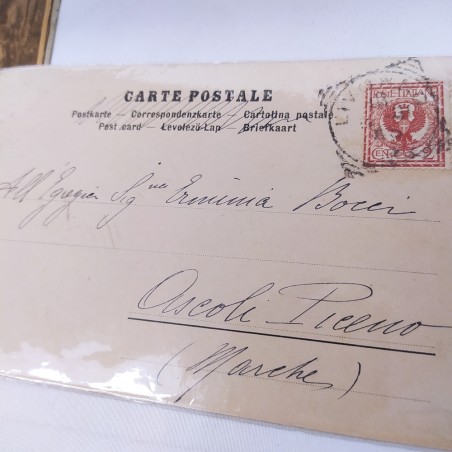 CARTE POSTALE
Postkarte — Correspondenzkarte — Cartolina postale
Post card — Levelező-Lap — Briefkaart
POSTE ITALIANE
CENT. 2
LIVORNO
All'Egregia Sig.na Erminia Bocci
Ascoli Piceno
(Marche)